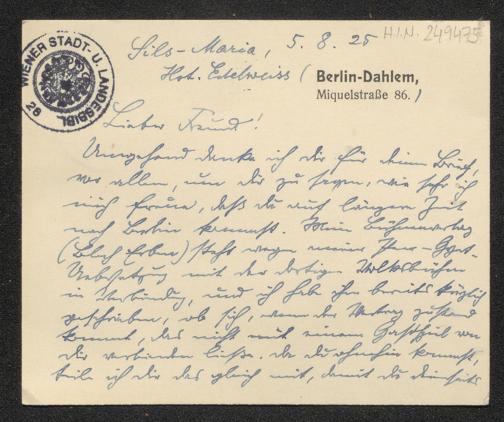 WIENER STADT- U. LANDESBIBL.
28
H.I.N. 249475
Sils-Maria, 5. 8. 25
Hot. Edelweiss (Berlin-Dahlem,
Miquelstraße 86.)
Lieber Freund!
Umgehend danke ich dir für deinen Brief,
vor allem, um dir zu sagen, wie sehr ich
mich freue, daß du auf längere Zeit
nach Berlin kommst. Mein Bühnenverlag
(Bloch Erben) steht wegen meiner Peer-Gynt-
Uebersetzung mit der dortigen Volksbühne
in Verbindung, und ich hab ihm bereits kürzlich
geschrieben, ob sich, wenn der Vertrag zustand
kommt, das nicht mit einem Gastspiel von
dir verbinden ließe. Da du ohnehin kommst,
teile ich dir das gleich mit, damit du deinerseits